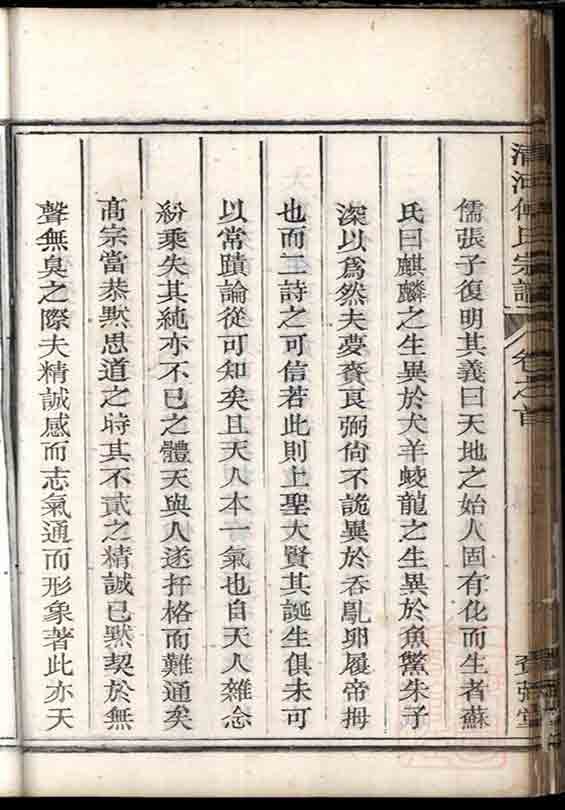 清河傅氏宗譜 卷之首
儒張子復明其義曰天地之始人固有化而生者蘇
氏曰麒麟之生異於犬羊蛟龍之生異於魚鱉朱子
深以爲然夫夢賚良弼尙不詭異於吞鳦卵履帝拇
也而二詩之可信若此則上聖大賢其誕生俱未可
以常蹟論從可知矣且天人本一氣也自天人雜念
紛乘失其純亦不已之體天與人遂扞格而難通矣
髙宗當恭默思道之時其不貳之精誠已默契於無
聲無臭之際夫精誠感而志氣通而形象著此亦天